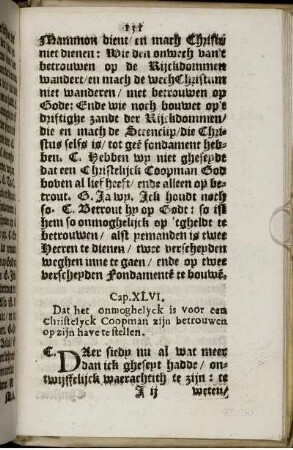 131
Mammon dient/ en mach Christo
niet dienen: Wie den onwech van't
betrouwen op de Rijckdommen
wandert/ en mach de wech Christum
niet wanderen/ met betrouwen op
Gode: Ende wie noch bouwet op's
driftighe zandt der Rijckdommen/
die en mach de Steenclip/ die Chri-
stus selfs is/ tot geē fondament heb-
ben. C. Hebben wy niet gheseydt
dat een Christelijck Coopman God
boven al lief heeft/ ende alleen op be-
trout. G. Ja wy. Ick houdt noch
so. C. Betrout hy op Godt: so ist
hem so onmoghelijck op 'tgheldt te
betrouwen/ alst yemanden is twee
Heeren te dienen/ twee verscheyden
weghen inne te gaen/ ende op twee
verscheyden Fondamentē te bouwē.
Cap. XLVI.
Dat het onmoghelyck is voor een
Christelyck Coopman zijn betrouwen
op zijn have te stellen.
C. DAer siedy nu al wat meer
dan ick gheseyt hadde/ on-
twijffelijck waerachtich te zijn: te
A ij weten/